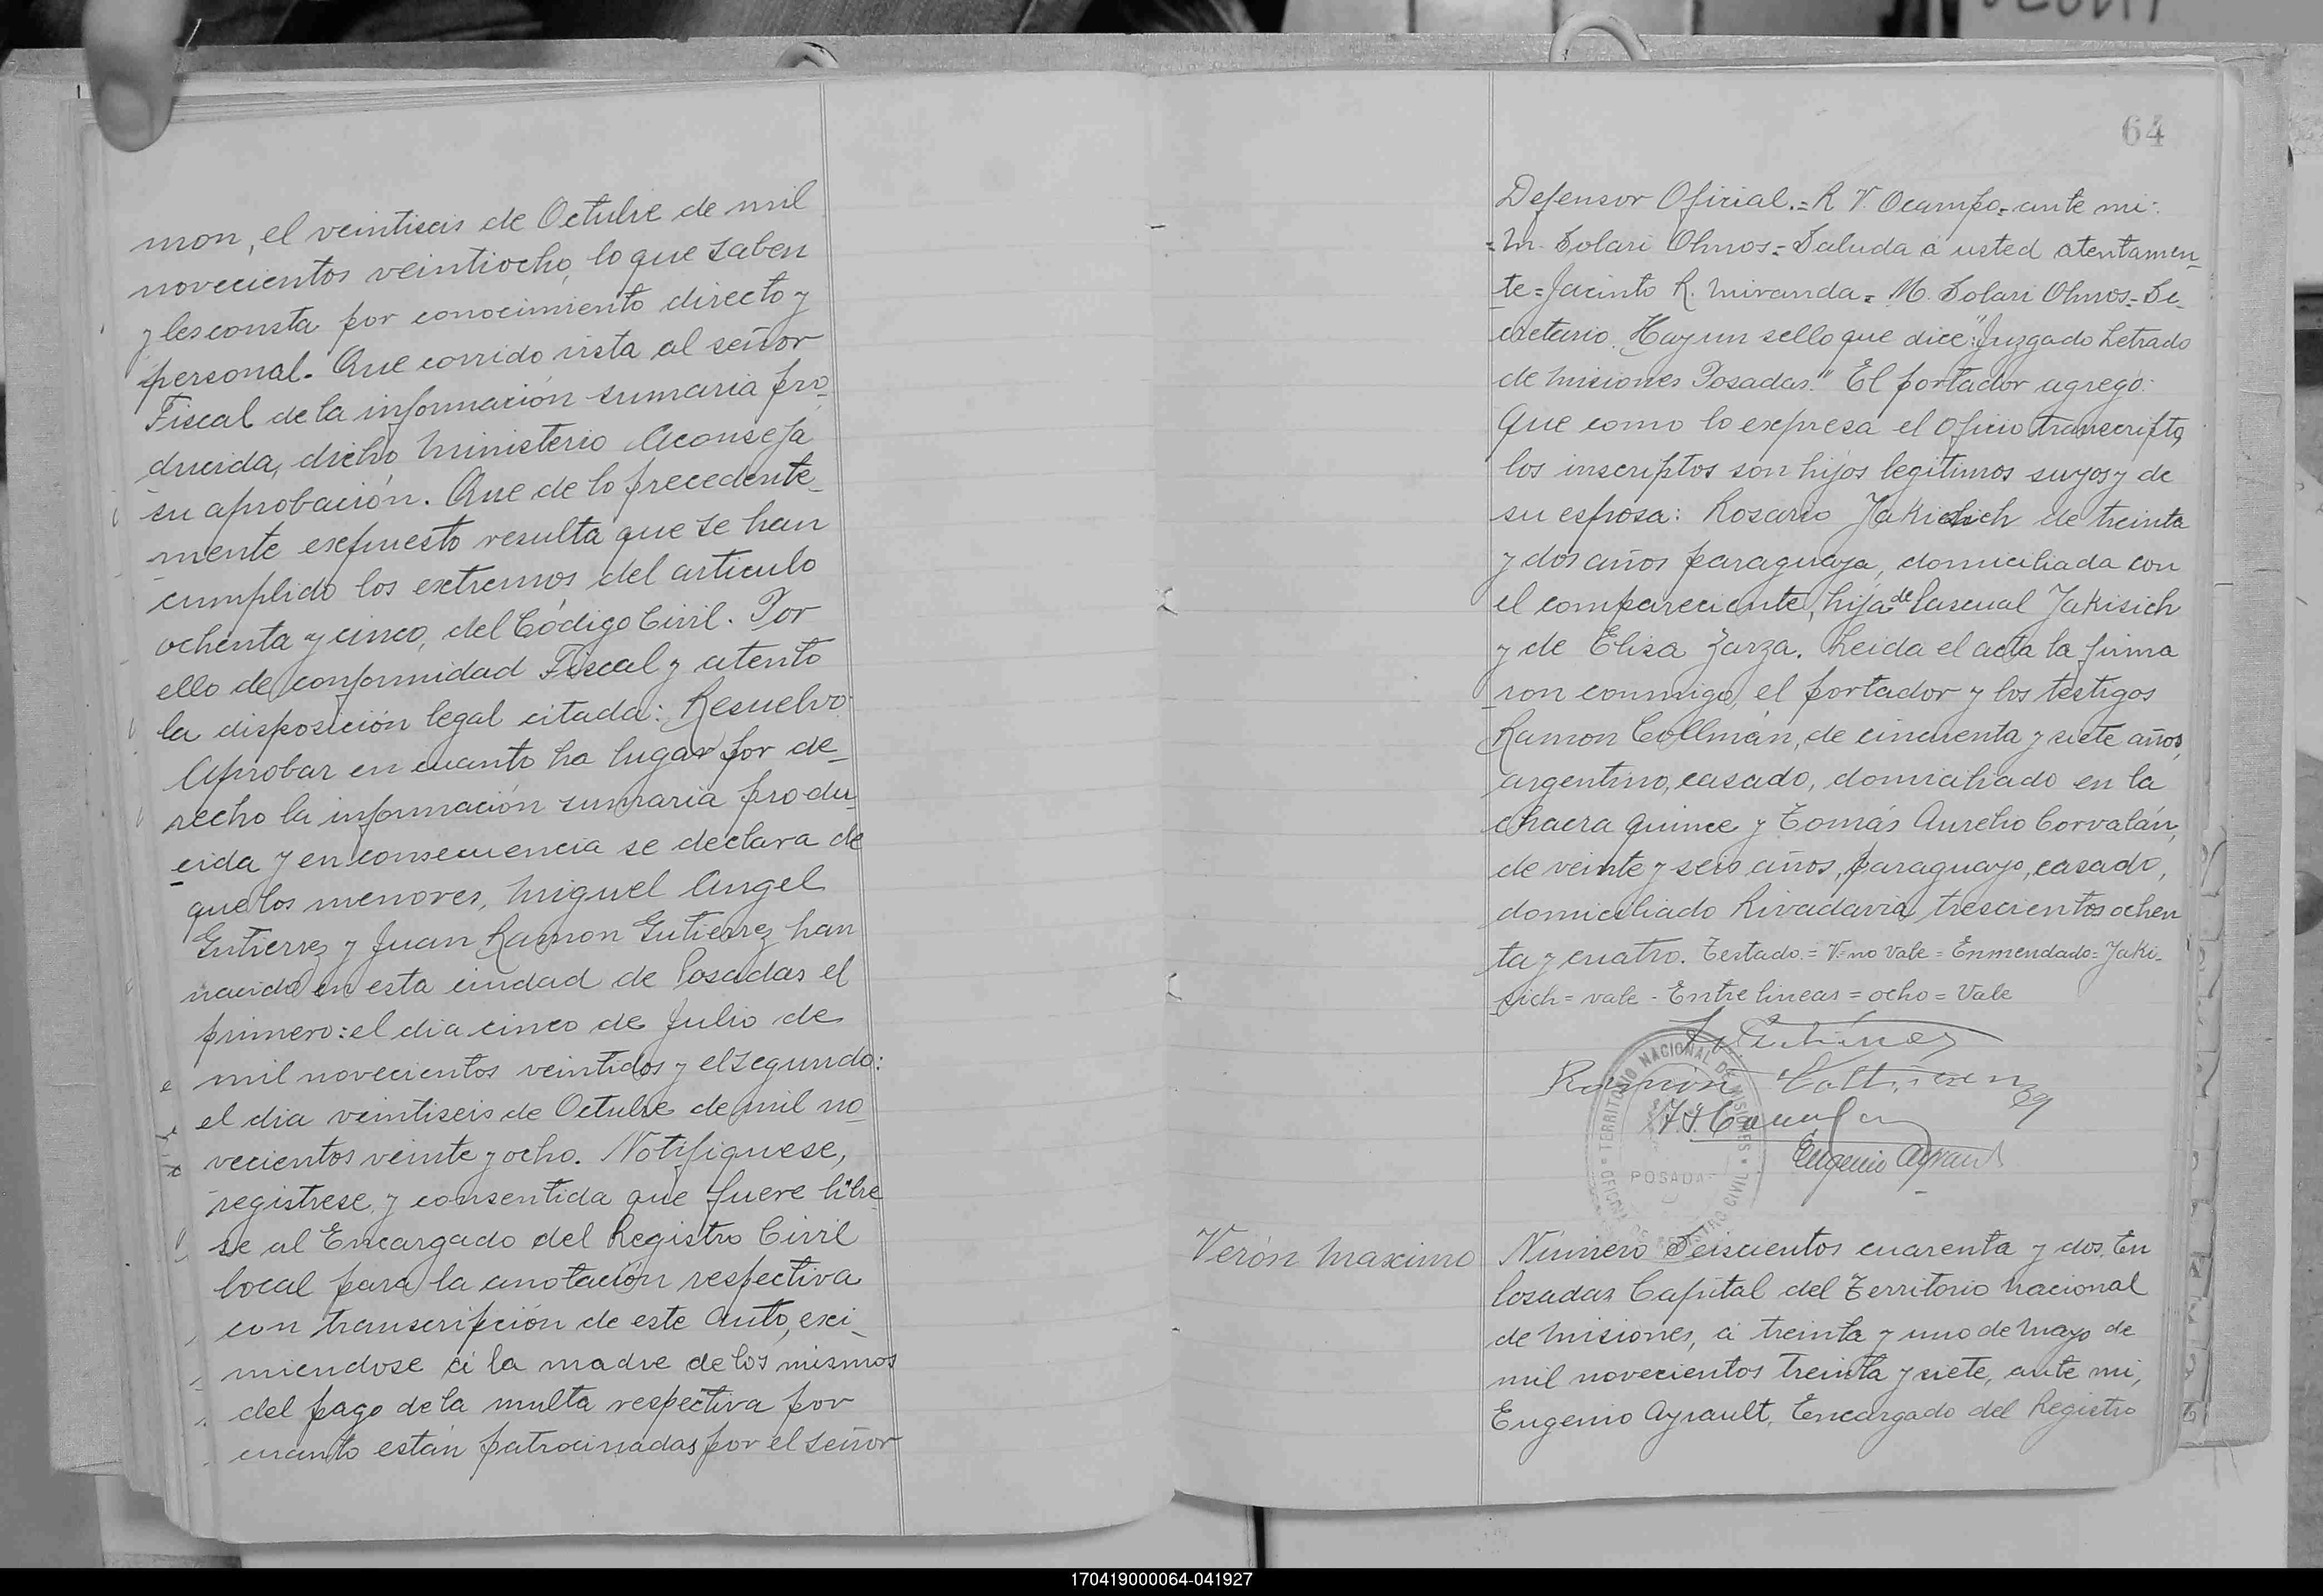 mon, el veintiseis de Octubre de mil
novecientos veintiocho, lo que saben
y les consta por conocimiento directo y
personal. Que corrido vista al señor
Fiscal de la información sumaria pro-
ducida, dicho Ministerio Aconseja
su aprobación. Que de lo precedente-
mente expuesto resulta que se han
cumplido los extremos del articulo
ochenta y cinco, del Código Civil. Por
ello de conformidad Fiscal y atento
la disposición legal citada: Resuelvo:
Aprobar en cuanto ha lugar por de-
recho la información sumaria produ-
cida y en consecuencia se declara de
que los menores, Miguel Angel
Gutierrez y Juan Ramon Gutierrez han
nacido en esta ciudad de Posadas el
primero: el dia cinco de Julio de
mil novecientos veintidos y el segundo:
el dia veintiseis de Octubre de mil no-
vecientos veinte y ocho. Notifiquese,
registrese, y consentida que fuere libre-
se al Encargado del Registro Civil
local para la anotación respectiva
con transcripción de este Auto, exi-
miendose á la madre de los mismos
del pago de la multa respectiva por
cuanto están patrocinadas por el señor
64
Defensor Oficial.= R V. Ocampo= ante mi:
=M. Solari Olmos= Saluda á usted atentamen-
te= Jacinto R. Miranda= M. Solari Olmos= Se-
cretario. Hay un sello que dice: "Juzgado Letrado
de Misiones Posadas." El portador agregó:
Que como lo expresa el Oficio transcripto,
los inscriptos son hijos legitimos suyos y de
su esposa: Rosario Jakisich de treinta
y dos años paraguaya, domiciliada con
el compareciente, hija de Pascual Jakisich
y de Elisa Zarza. Leida el acta la firma
ron conmigo, el portador y los testigos
Ramon Collmán, de cincuenta y siete años,
argentino, casado, domiciliado en la
chacra quince y Tomás Aurelio Corvalán,
de veinte y seis años, paraguayo, casado,
domiciliado Rivadavia, trescientos ochen
ta y cuatro. Testado.= V= no Vale = Enmendado= Jaki-
sich= vale - Entre lineas = ocho = Vale
Gutiérrez
Ramón
Eugenio Ayrault
TERRITORIO NACIONAL DE MISIONES
POSADAS
Verón Maximo
Número Seiscientos cuarenta y dos. En
Posadas Capital del Territorio Nacional
de Misiones, á treinta y uno de Mayo de
mil novecientos treinta y siete, ante mi,
Eugenio Ayrault, Encargado del Registro
170419000064-041927